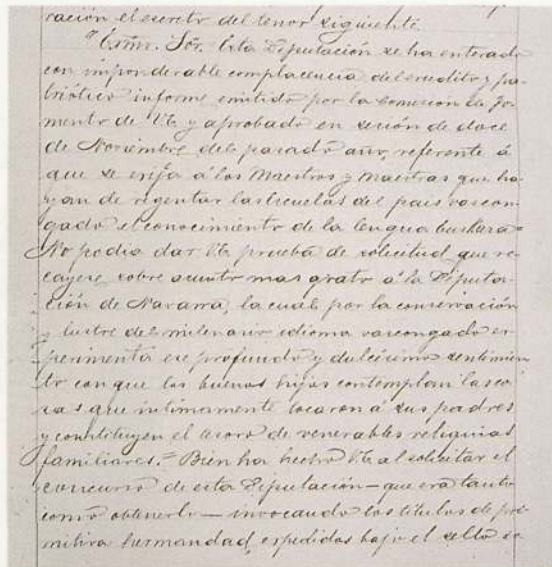 ración el escrito del tenor siguiente.
"Excm. Sor. Esta Diputación se ha enterado
con imponderable complacencia del erudito y pa-
triótico informe emitido por la Comisión de Fo-
mento de VE y aprobado en sesión de doce
de Noviembre del pasado año, referente á
que se exija á los Maestros y Maestras que ha-
yan de regentar las Escuelas del pais vascon-
gado el conocimiento de la lengua Euskara=
No podia dar VE prueba de solicitud que re-
cayese sobre asunto mas grato á la Diputa-
ción de Navarra, la cual por la conservación
y lustre del milenario idioma vascongado ex-
perimenta ese profundo y dulcísimo sentimien-
to con que los buenos hijos contemplan las co-
sas que intimamente tocaron á sus padres
y constituyen el tesoro de venerables reliquias
familiares.= Bien ha hecho VE al solicitar el
concurso de esta Diputación — que era tanto
como obtenerlo — invocando los títulos de pri-
mitiva hermandad, expedidos bajo el sello